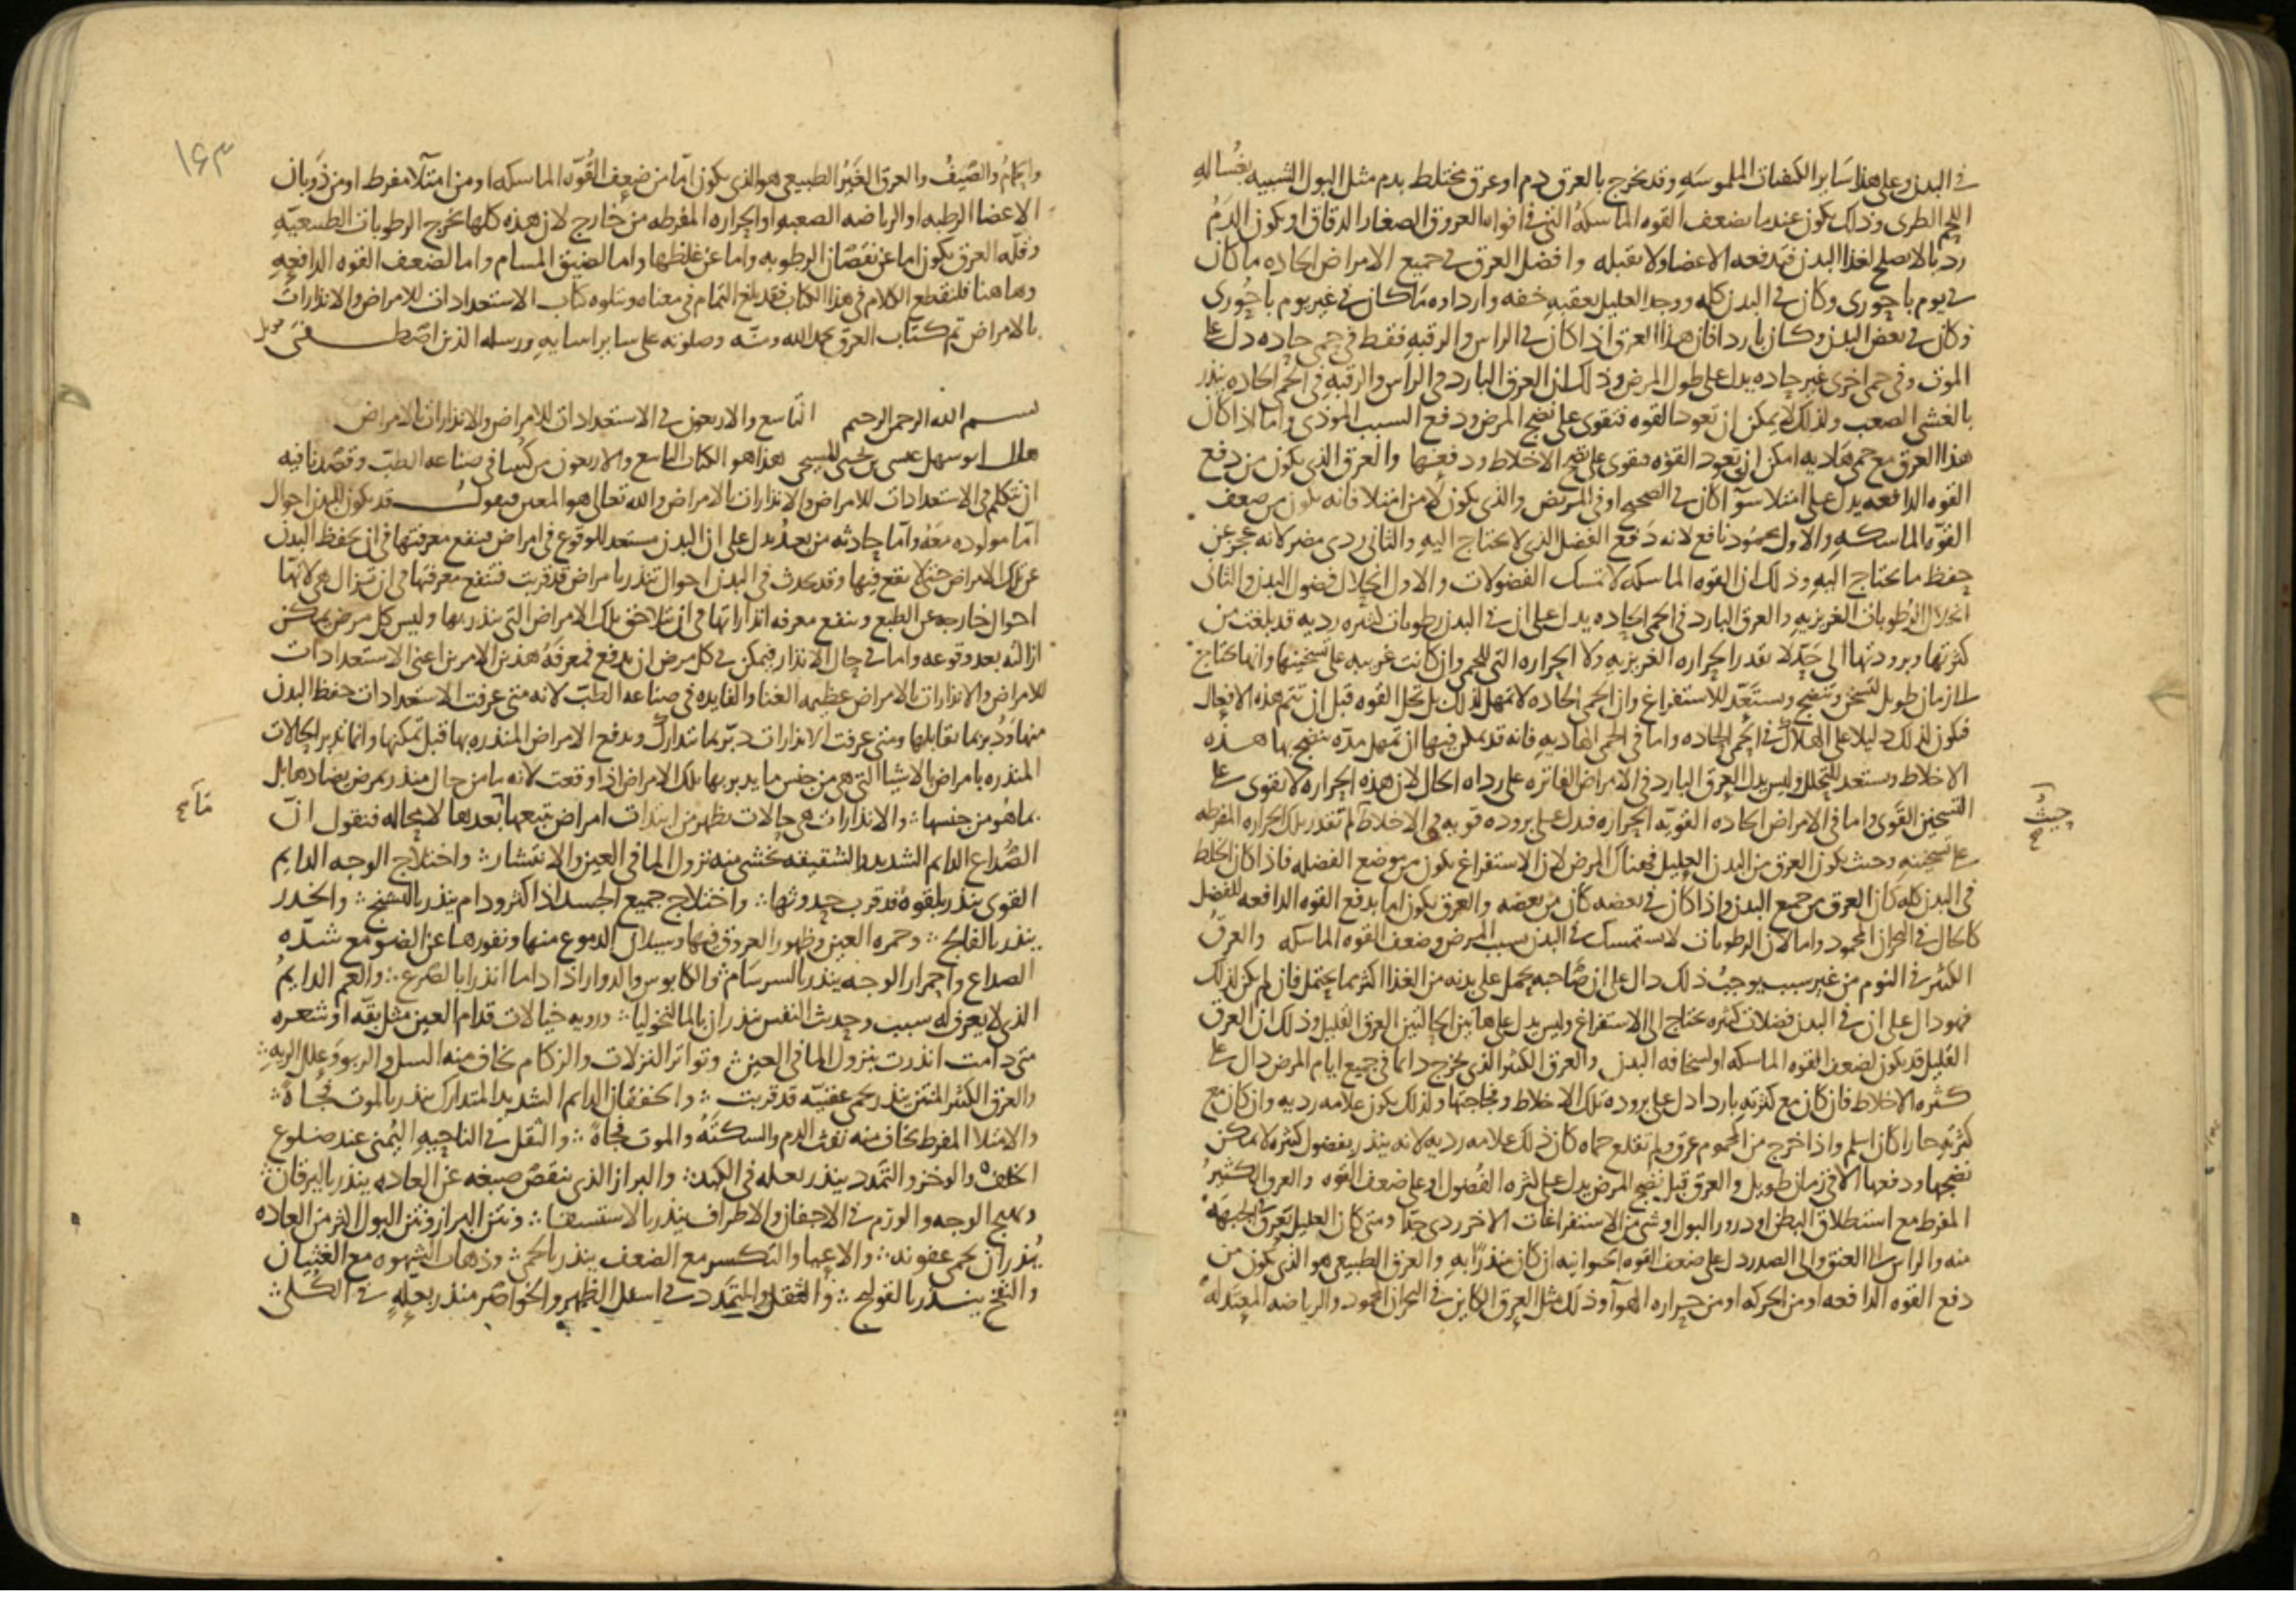 في البدن وعلى هذا ساير الكيفيات الملموسه وقد يخرج بالعرق دم او عرق مختلط بدم مثل البول الشبيه بغساله
اللحم الطرى وذلك يكون عندما يضعف القوه الماسكه التي في افواه العروق الصغار الدقاق او يكون الدم
رديا لا يصلح لغذا البدن فتدفعه الاعضا ولا تقبله وافضل العرق في جميع الامراض الحاده ما كان
في يوم باحورى وكان في البدن كله ووجد العليل بعقبه خفه وارداوه ما كان في غير يوم باحورى
وكان في بعض البدن وكان باردا فان هذا العرق اذا كان في الراس والرقبه فقط في حمى حاده دل على
الموت وفي حمى اخرى غير حاده يدل على طول المرض وذلك ان العرق البارد في الراس والرقبه في الحمى الحاده ينذر
بالغشى الصعب ولذلك لا يمكن ان تعود القوه فتقوى على نضج المرض ودفع السبب الموذى واما اذا كان
هذا العرق مع حمى هاديه امكن ان تعود القوه فتقوى على نضج الاخلاط ودفعها والعرق الذى يكون من دفع
القوه الدافعه يدل على امتلا سوآ كان في الصحيح او في المريض والذى يكون لا من امتلا فانه يكون من ضعف
القوه الماسكه والاول محمود نافع لانه دفع الفضل الذى لا يحتاج اليه والثانى ردى مضر لانه عجز عن
حفظ ما يحتاج اليه وذلك ان القوه الماسكه لا تمسك الفضولات والاول انحلال فضول البدن والثانى
انحلال الرطوبات الغريزيه والعرق البارد في الحمى الحاده يدل على ان في البدن رطوبات كثيره رديه قد بلغت من
كثرتها وبرودتها الى حد لا تقدر الحراره الغريزيه ولا الحراره التى للحمى وان كانت غريبه على تسخينها وانها تحتاج
الى زمان طويل لتسخن وتنضج وتستعد للاستفراغ وان الحمى الحاده لا تمهل لذلك بل تحل القوه قبل ان تتم هذه الافعال
فيكون لذلك دليلا على الهلاك في الحمى الحاده واما في الحمى الهاديه فانه قد يمكن فيها ان تمهل مده ينضج بها هذه
الاخلاط وتستعد للتحلل وليس يدل العرق البارد في الامراض الفاتره على رداه الحال لان هذه الحراره لا تقوى على
التسخين القوى واما في الامراض الحاده القويه الحراره فيدل على بروده قويه في الاخلاط لم تقدر تلك الحراره المفرطه
على تسخينه وحيث يكون العرق من البدن العليل فهناك المرض لان الاستفراغ يكون من موضع الفضله فاذا كان الخلط
في البدن كله كان العرق من جميع البدن واذا كان في بعضه كان من بعضه والعرق يكون اما بدفع القوه الدافعه للفضل
كالحال في البحران المحمود واما لان الرطوبات لا تستمسك في البدن بسبب المرض وضعف القوه الماسكه والعرق
الكثير في النوم من غير سبب يوجب ذلك دال على ان صاحبه يحمل على بدنه من الغذا اكثر مما يحتمل فان لم يكن لذلك
فهو دال على ان في البدن فضلات كثيره تحتاج الى الاستفراغ وليس يدل على هاتين الحالتين العرق القليل وذلك ان العرق
القليل قد يكون لضعف القوه الماسكه او لسخافه البدن والعرق الكثير الذى يخرج دائما في جميع ايام المرض دال على
كثره الاخلاط فان كان مع كثرته باردا دل على بروده تلك الاخلاط وفجاجتها ولذلك يكون علامه رديه وان كان مع
كثرته حارا كان اسلم واذا خرج من المحموم عرق ولم تقلع حماه كان ذلك علامه رديه لانه ينذر بفضول كثيره لا يمكن
نضجها ودفعها الا في زمان طويل والعرق قبل نضج المرض يدل على كثره الفضول او على ضعف القوه والعرق الكثير
المفرط مع استطلاق البطن او درور البول او شى من الاستفراغات الاخر ردى جدا ومتى كان العليل يعرق الجبهه
منه والراس الى العنق والى الصدر دل على ضعف القوه الحيوانيه او كان منذرا به والعرق الطبيعى هو الذى يكون من
دفع القوه الدافعه او من الحركه او من حراره الهوآ وذلك مثل العرق الكاين في البحران المحمود والرياضه المعتدله
حيث
١٦٣
والحمام والصيف والعرق الغير الطبيعى هو الذى يكون اما من ضعف القوه الماسكه او من امتلآ مفرط او من ذوبان
الاعضا الرطبه او الرياضه الصعبه او الحراره المفرطه من خارج لان هذه كلها تخرج الرطوبات الطبيعيه
وقله العرق يكون اما عن نقصان الرطوبه واما عن غلظها واما لضيق المسام واما لضعف القوه الدافعه
وهاهنا فلنقطع الكلام في هذا الكتاب فقد بلغ التمام في معناه ويتلوه كتاب الاستعدادات للامراض والانذارات
بالامراض تم كتاب العرق بحمد الله ومنه وصلوته على ساير انبيايه ورسله الذين اصطفى
بسم الله الرحمن الرحيم التاسع والاربعون في الاستعدادات للامراض والانذارات بالامراض
قال ابو سهل عيسى بن يحيى المسيحى هذا هو الكتاب التاسع والاربعون من كتبنا في صناعه الطب وقصدنا فيه
ان نتكلم في الاستعدادات للامراض والانذارات بالامراض والله تعالى هو المعين فنقول قد يكون للبدن احوال
اما مولوده معه واما حادثه من بعد يدل على ان البدن مستعد للوقوع في امراض فينفع معرفتها في ان يحفظ البدن
عن تلك الامراض حتى لا يقع فيها وقد يحدث في البدن احوال تنذر بامراض قد قربت فتنفع معرفتها في ان تزال هى لانها
احوال خارجه عن الطبع وينفع معرفه انذاراتها في ان يتلاحق تلك الامراض التى ينذر بها وليس كل مرض يمكن
ازالته بعد وقوعه واما في حال الانذار فيمكن في كل مرض ان يدفع فمعرفه هذين الامرين اعنى الاستعدادات
للامراض والانذارات بالامراض عظيمه الغنا والفايده في صناعه الطب لانه متى عرفت الاستعدادات حفظ البدن
منها ودبر بما تقابلها ومتى عرفت الانذارات دبر بما تتدارك وتدفع الامراض المنذره بها قبل تمكنها وانما تدبر الحالات
المنذره بامراض بالاشيا التى هى من جنس ما يدبر بها تلك الامراض اذا وقعت لانه ما من حال منذر بمرض يضادها بل
بما هو من جنسها والانذارات هى حالات تظهر من ابتدات امراض تتبعها بعدها لا محاله فنقول ان
الصداع الدايم الشديد والشقيقه يخشى منه نزول الما في العين والانتشار واختلاج الوجه الدايم
القوى ينذر بلقوه قد قرب حدوثها واختلاج جميع الجسد اذا كثر ودام ينذر بالتشنج والخدر
ينذر بالفالج وحمره العين وظهور العروق فيها وسيلان الدموع منها ونفورها عن الضو مع شده
الصداع واحمرار الوجه ينذر بالسرسام والكابوس والدوار اذا داما انذرا بالصرع والغم الدايم
الذى لا يعرف له سبب وحديث النفس ينذران بالمالنخوليا ورويه خيالات قدام العين مثل بقه او شعره
متى دامت انذرت بنزول الما في العين وتواتر النزلات والزكام يخاف منه السل والربو وعلل الريه
والعرق الكثير المنتن ينذر بحمى عفنيه قد قربت والخفقان الدايم الشديد المتدارك ينذر بالموت فجاة
والامتلا المفرط يخاف منه نفث الدم والسكته والموت فجاة والثقل في الناحيه اليمنى عند ضلوع
الخلف والوخز والتمدد ينذر بعله في الكبد والبراز الذى ينقص صبغه عن العاده ينذر باليرقان
وتهيج الوجه والورم في الاجفان والاطراف ينذر بالاستسقا ونتن البراز ونتن البول اكثر من العاده
ينذران بحمى عفونه والاعيا والتكسر مع الضعف ينذر بالحمى وذهاب الشهوه مع الغثيان
والنفخ ينذر بالقولنج والثقل والتمدد في اسفل الظهر والخواصر منذر بعله في الكلى